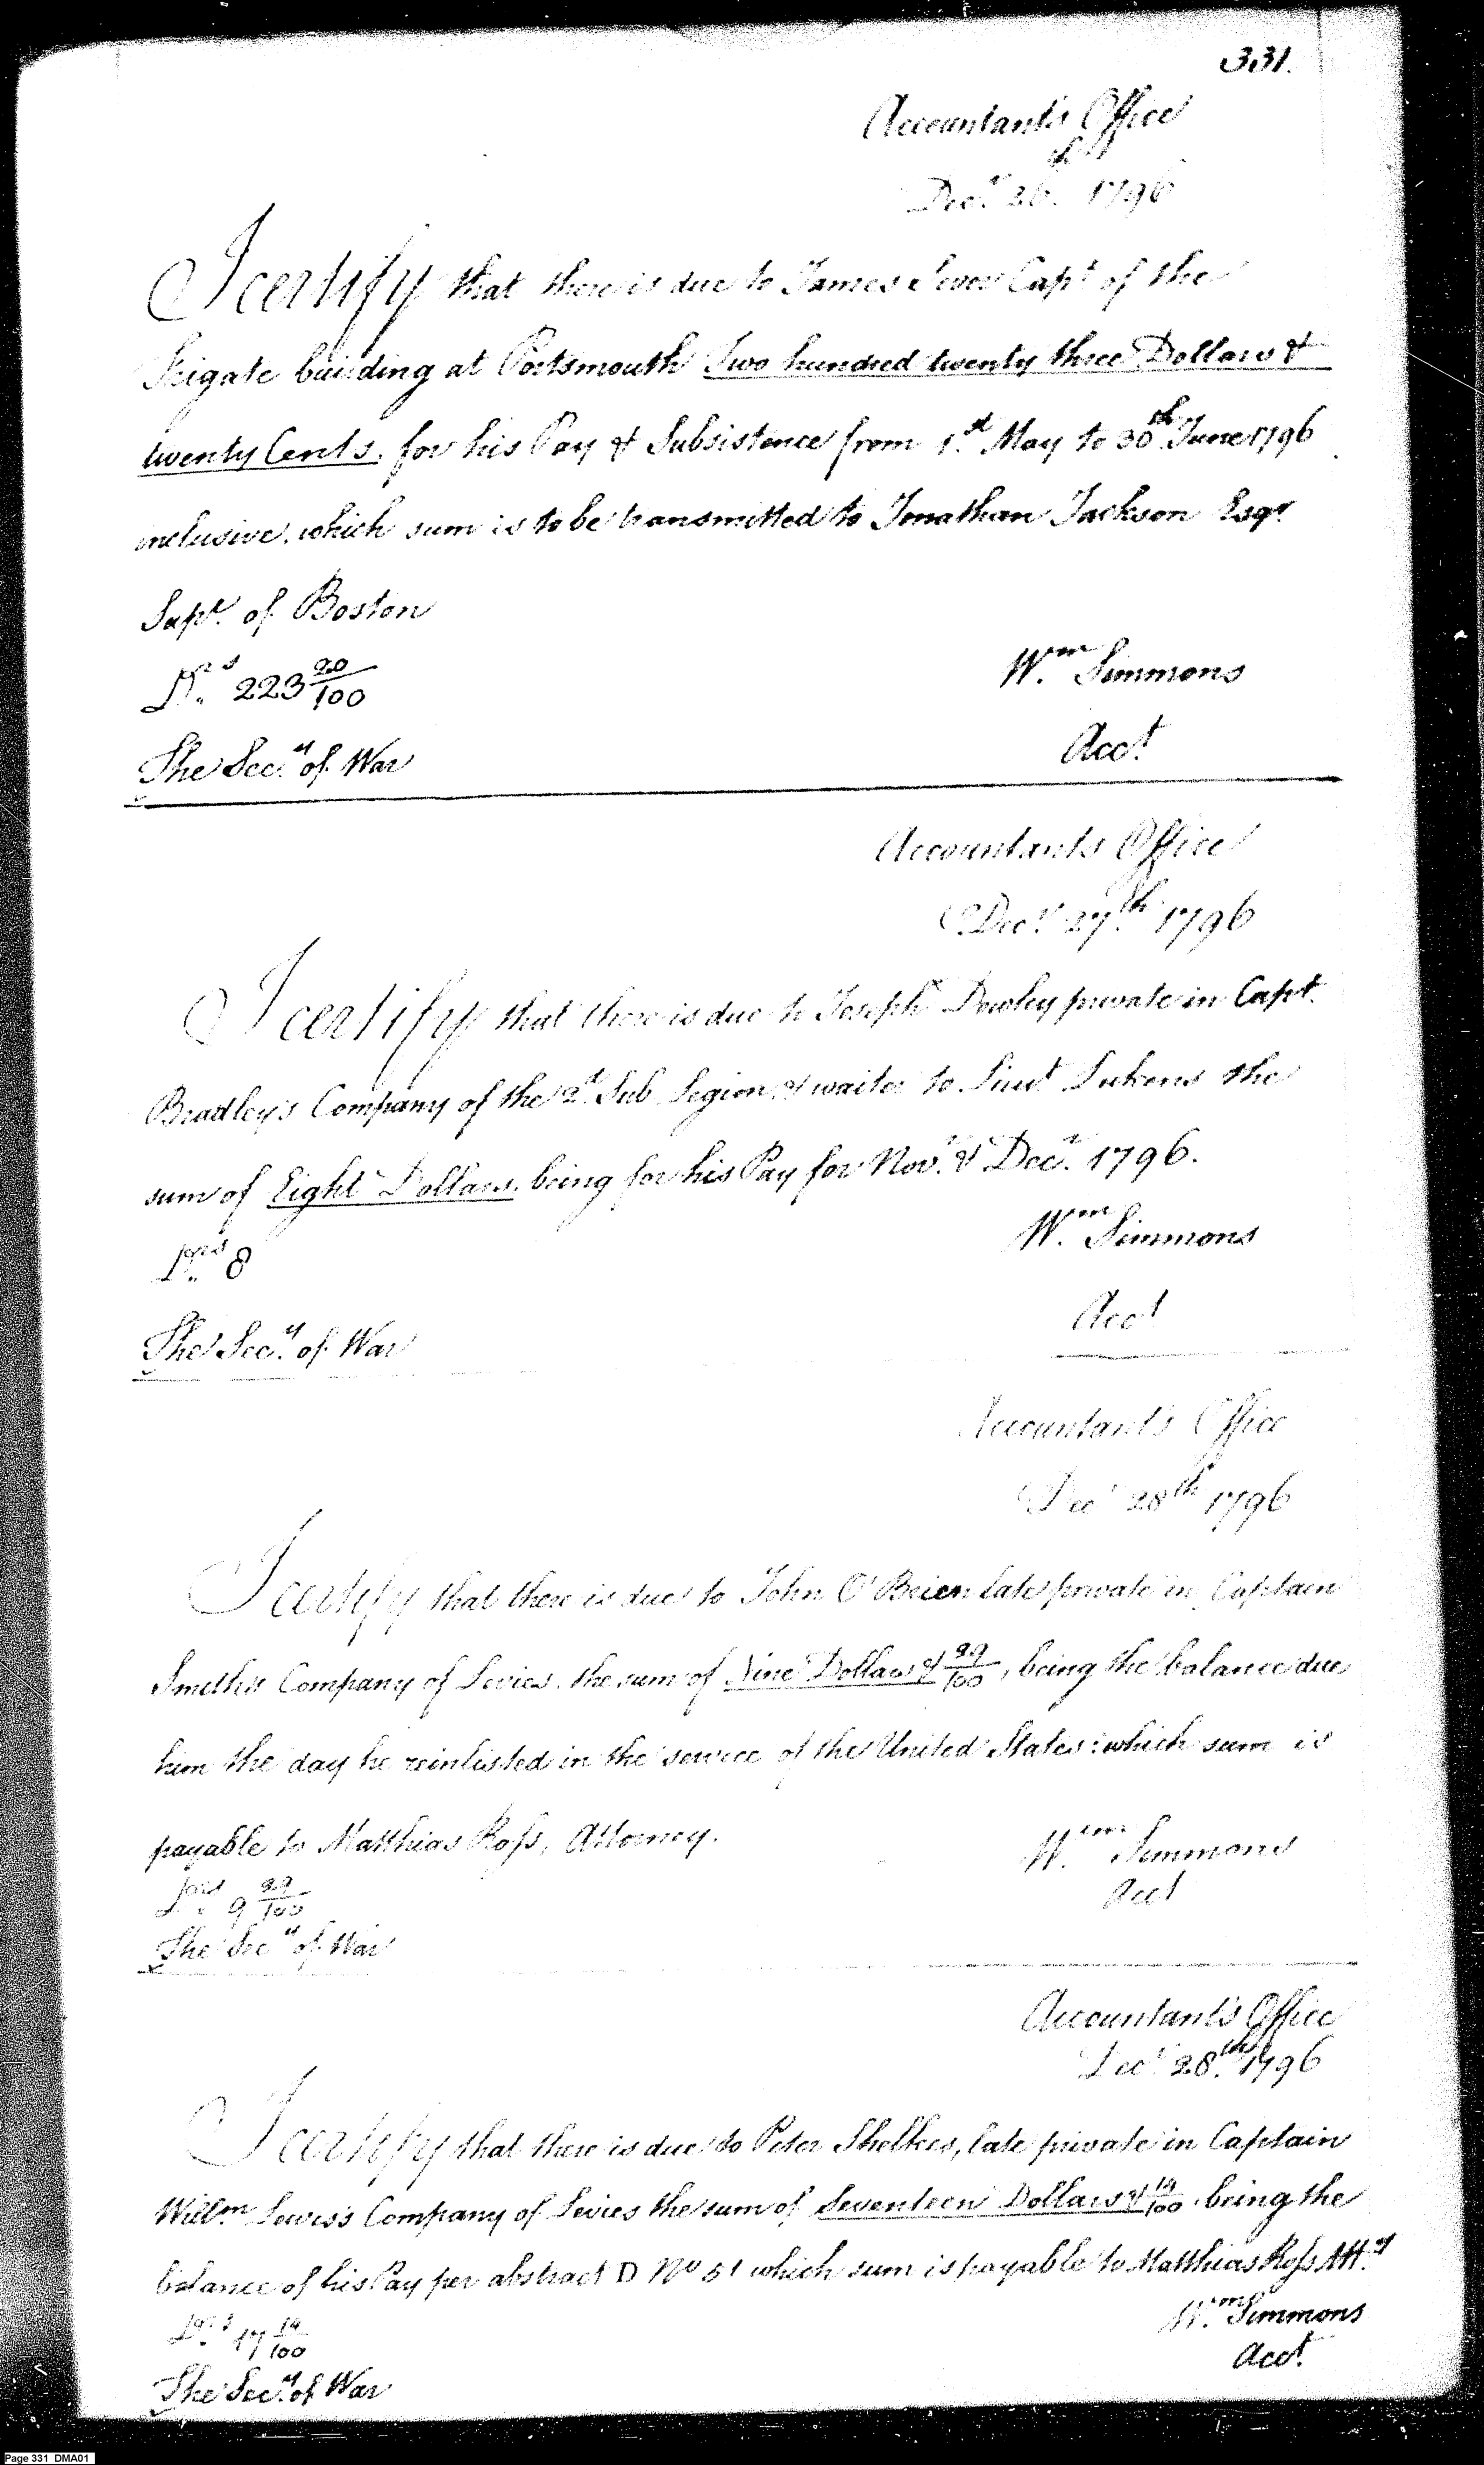 331.
Accountant's Office
Decr. 26th. 1796
I certify that there is due to James Sever Capt of the
Frigate building at Portsmouth Two hundred twenty three Dollars &
twenty Cents. for his Pay & Subsistence from 1st May to 30th June 1796
inclusive. which sum is to be transmitted to Jonathan Jackson Esqr
Supr. of Boston
Drs. 223 20/100
Wm Simmons
Acct.
The Secy. of War
Accountants Office
Decr. 27th. 1796
I certify that there is due to Joseph Dowley private in Capt.
Bradley's Company of the 2d. Sub Legion & waiter to Lieut Lukens the
sum of Eight Dollars. being for his Pay for Novr. & Decr. 1796.
Wm Simmons
Drs. 8
Acct
The Secy. of War
Accountant's Office
Decr 28th 1796
I certify that there is due to John O'Brien late private in Captain
Smith's Company of Levies. the sum of Nine Dollars & 99/100, being the balance due
him the day he reinlisted in the service of the United States: which sum is
payable to Matthias Ross, Attorney.
Wm. Simmons
Acct
Drs. 9 99/100
The Secy of War
Accountant's Office
Decr 28th. 1796
I certify that there is due to Peter Shelkes, late private in Captain
Willm Lewis's Company of Levies the sum of Seventeen Dollars & 14/100 being the
balance of his Pay per abstract D No 51 which sum is payable to Matthias Ross Atty
Drs. 17 14/100
Wm. Simmons
Acct.
The Secy. of War
Page 331 DMA01